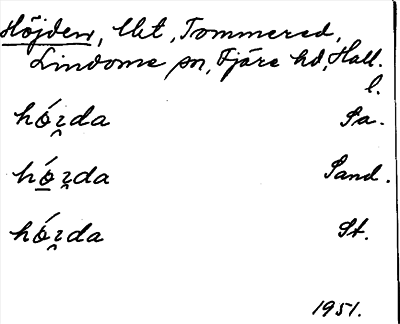 Höjden, lht, Tommered,
Lindome sn, Fjäre hd, Hall.
l.
hó̯ɪda Sa.
hó̯ɪda Sand.
hó̯ɪda St.
1951.